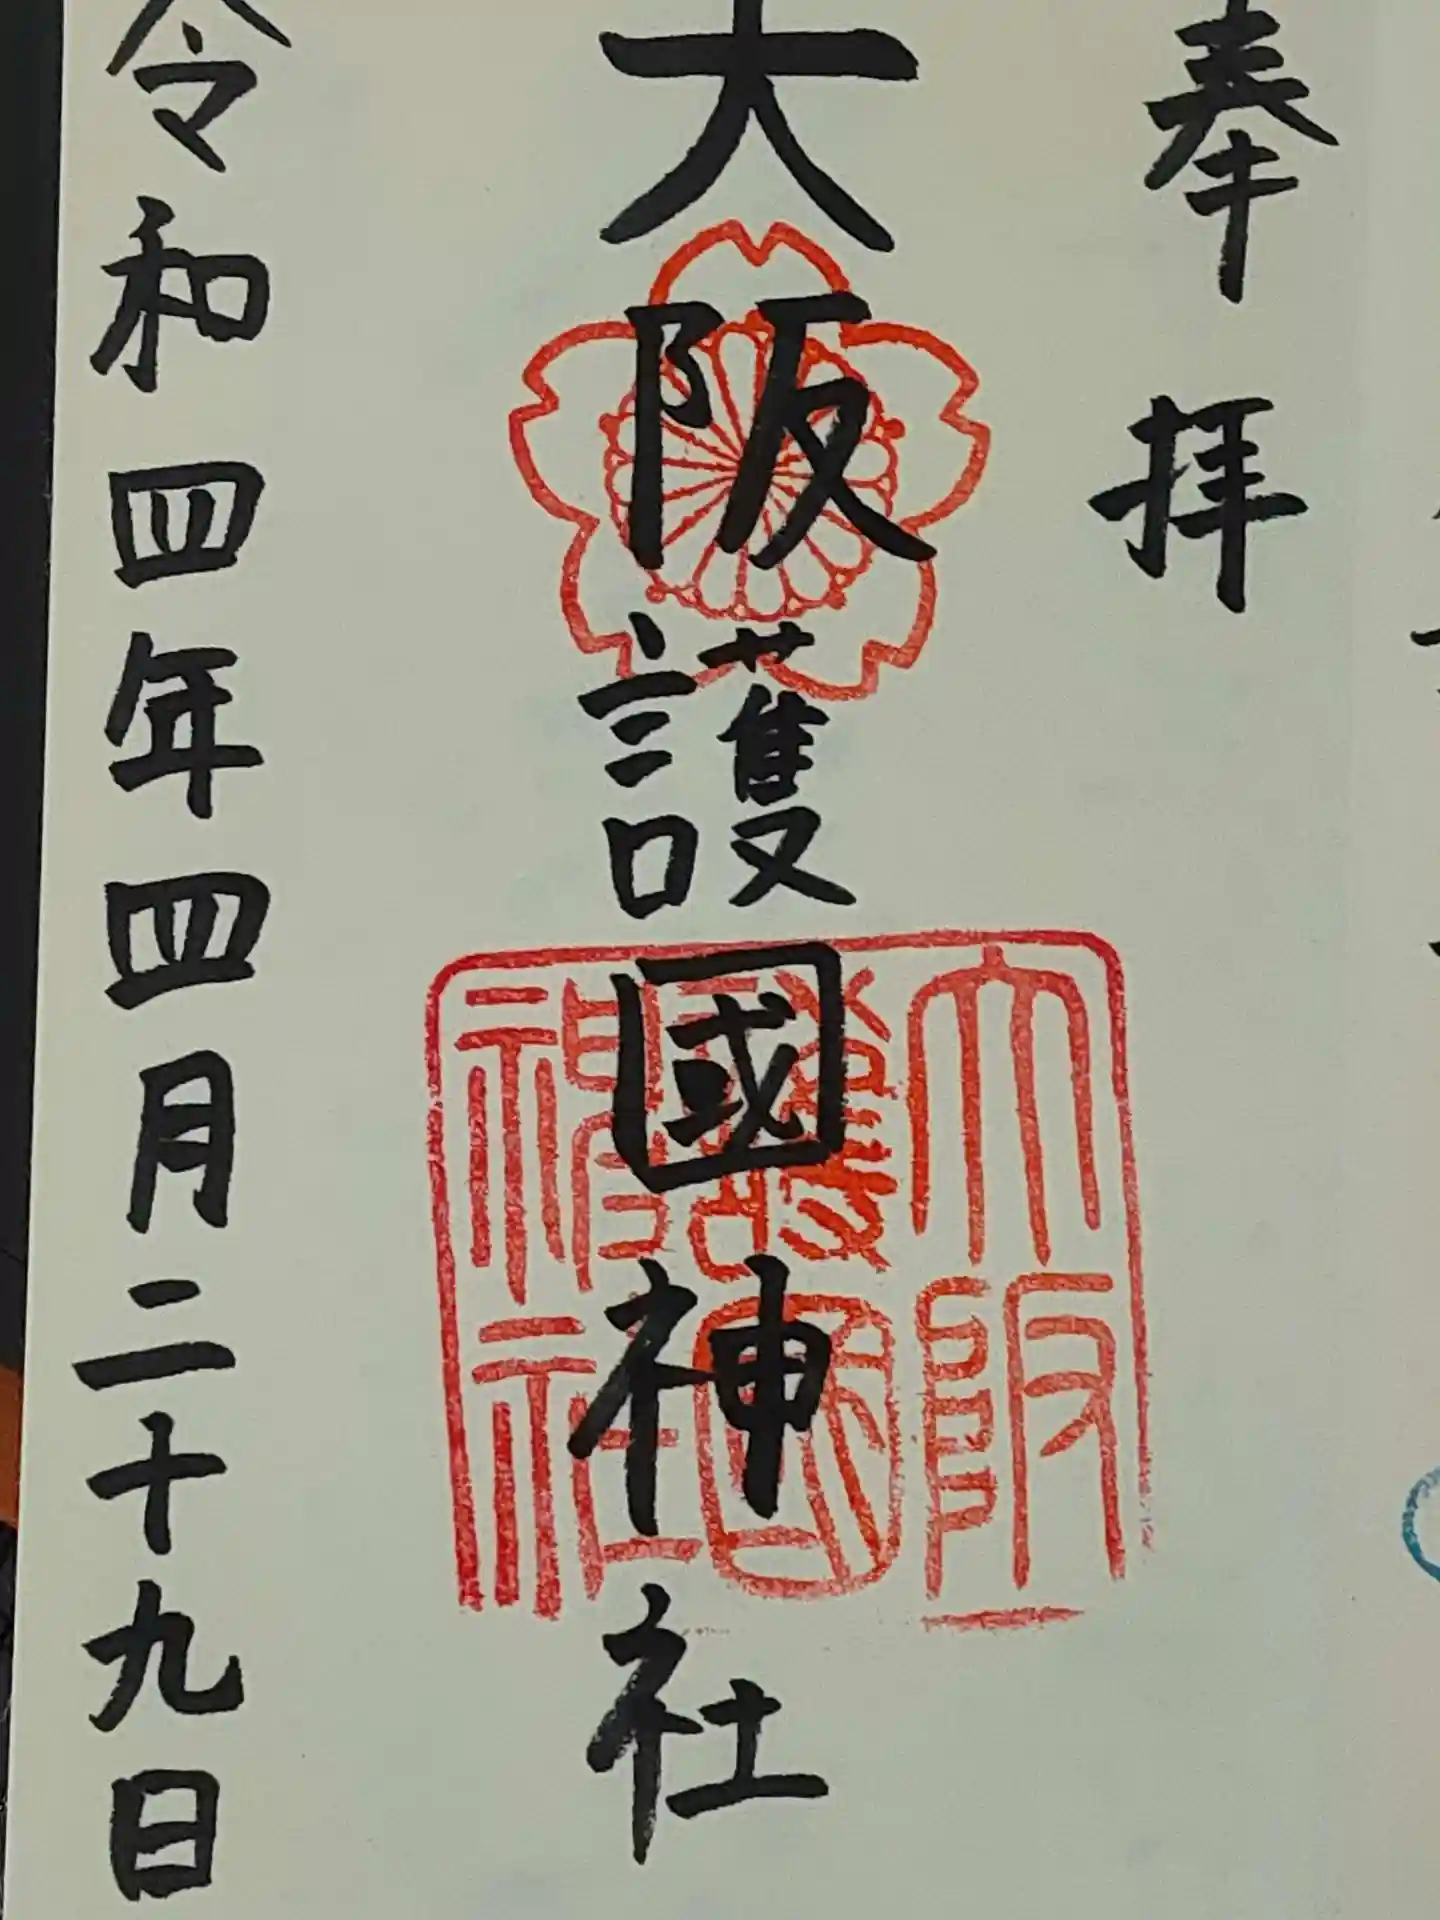 奉拝
大阪護國神社
大阪護國神社
令和四年四月二十九日